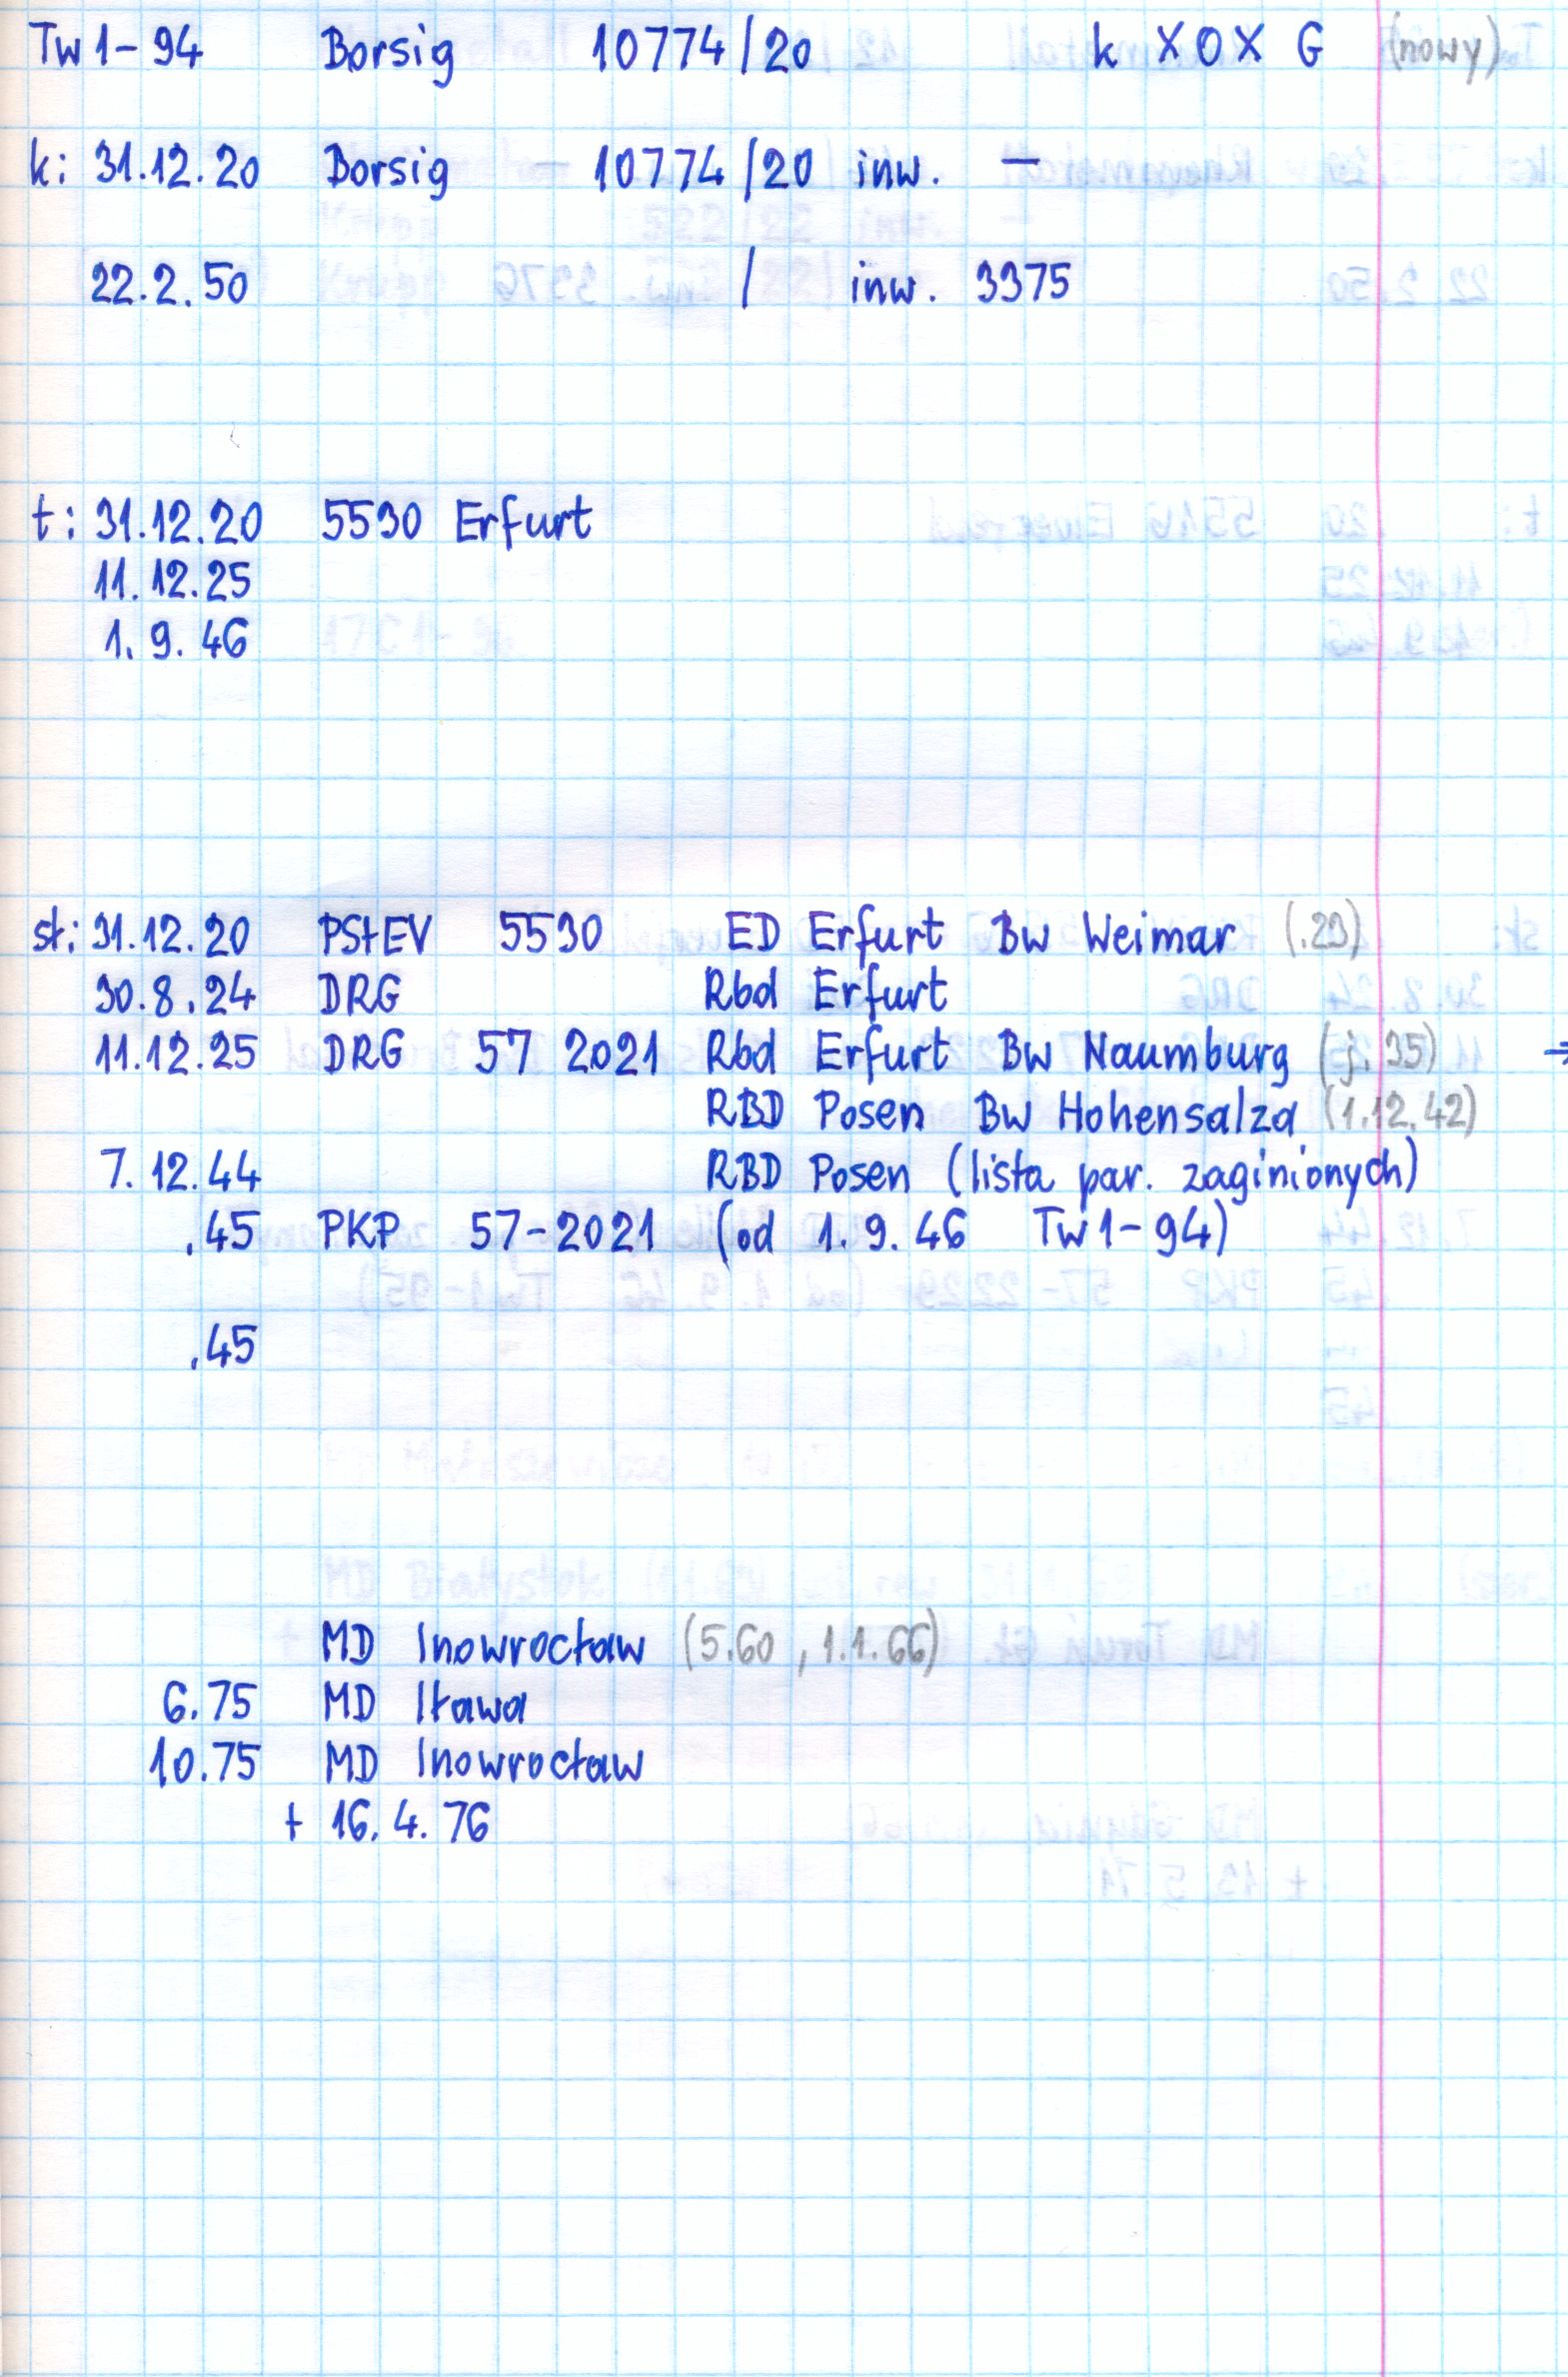 Tw1-94 Borsig 10774/20 k XOX G (nowy)
k: 31.12.20 Borsig 10774/20 inw. —
22.2.50 / inw. 3375
t: 31.12.20 5530 Erfurt
11.12.25
1.9.46
st: 31.12.20 PStEV 5530 ED Erfurt Bw Weimar (.23)
30.8.24 DRG Rbd Erfurt
11.12.25 DRG 57 2021 Rbd Erfurt Bw Naumburg (j.35) →
RBD Posen Bw Hohensalza (1.12.42)
7.12.44 RBD Posen (lista par. zaginionych)
.45 PKP 57-2021 (od 1.9.46 Tw1-94)
.45
MD Inowrocław (5.60, 1.1.66)
6.75 MD Iława
10.75 MD Inowrocław
+ 16.4.76